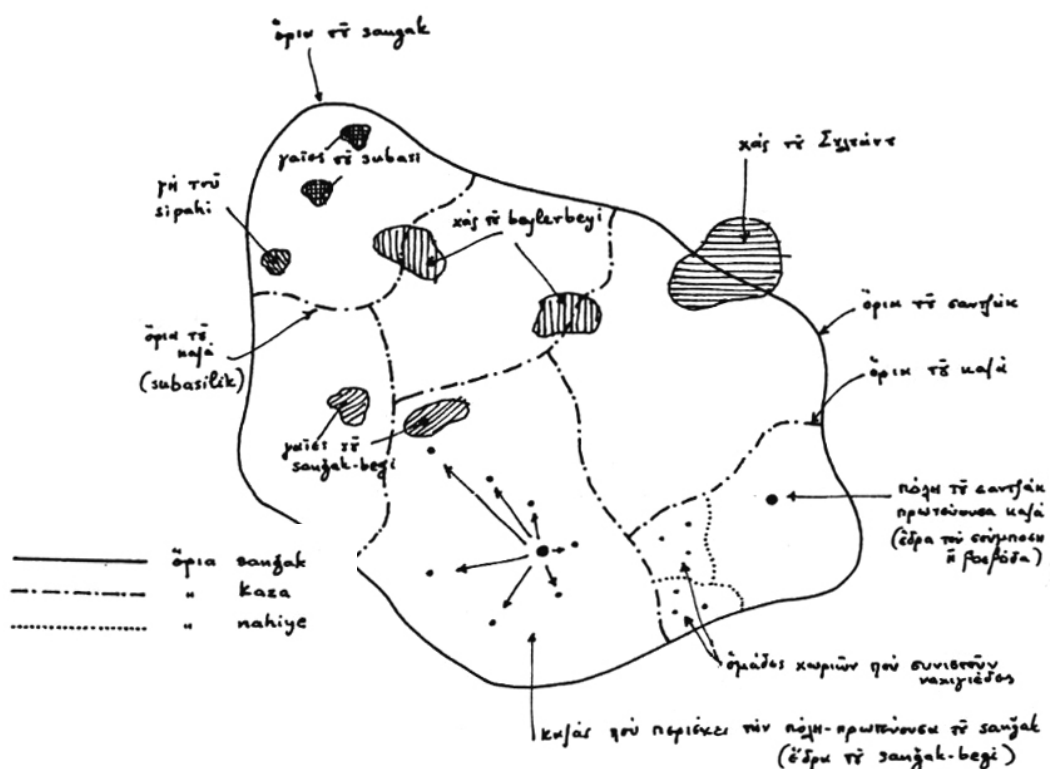 ὅρια τȣ̃ sanǧak
γαῖες τȣ̃ subasi
χάς τȣ̃ Σουλτάνου
γῆ τοῦ
sipahi
χάς τȣ̃ beylerbeyi
ὅρια τȣ̃
καζᾶ
(subasilik)
ὅρια τȣ̃ σαντζάκ
ὅρια τȣ̃ καζᾶ
γαῖες τȣ̃
sanǧak-begi
πόλη τȣ̃ σαντζάκ
πρωτεύουσα καζᾶ
(ἕδρα τοῦ σούμπαση
ἤ βοεβόδα)
ὅρια sanǧak
" kaza
" nahiye
ὁμάδες χωριῶν πού συνιστοῦν
ναχιγιέδες
καζάς πού περιέχει τήν πόλη-πρωτεύουσα τȣ̃ sanǧak
(ἕδρα τȣ̃ sanǧak-begi)